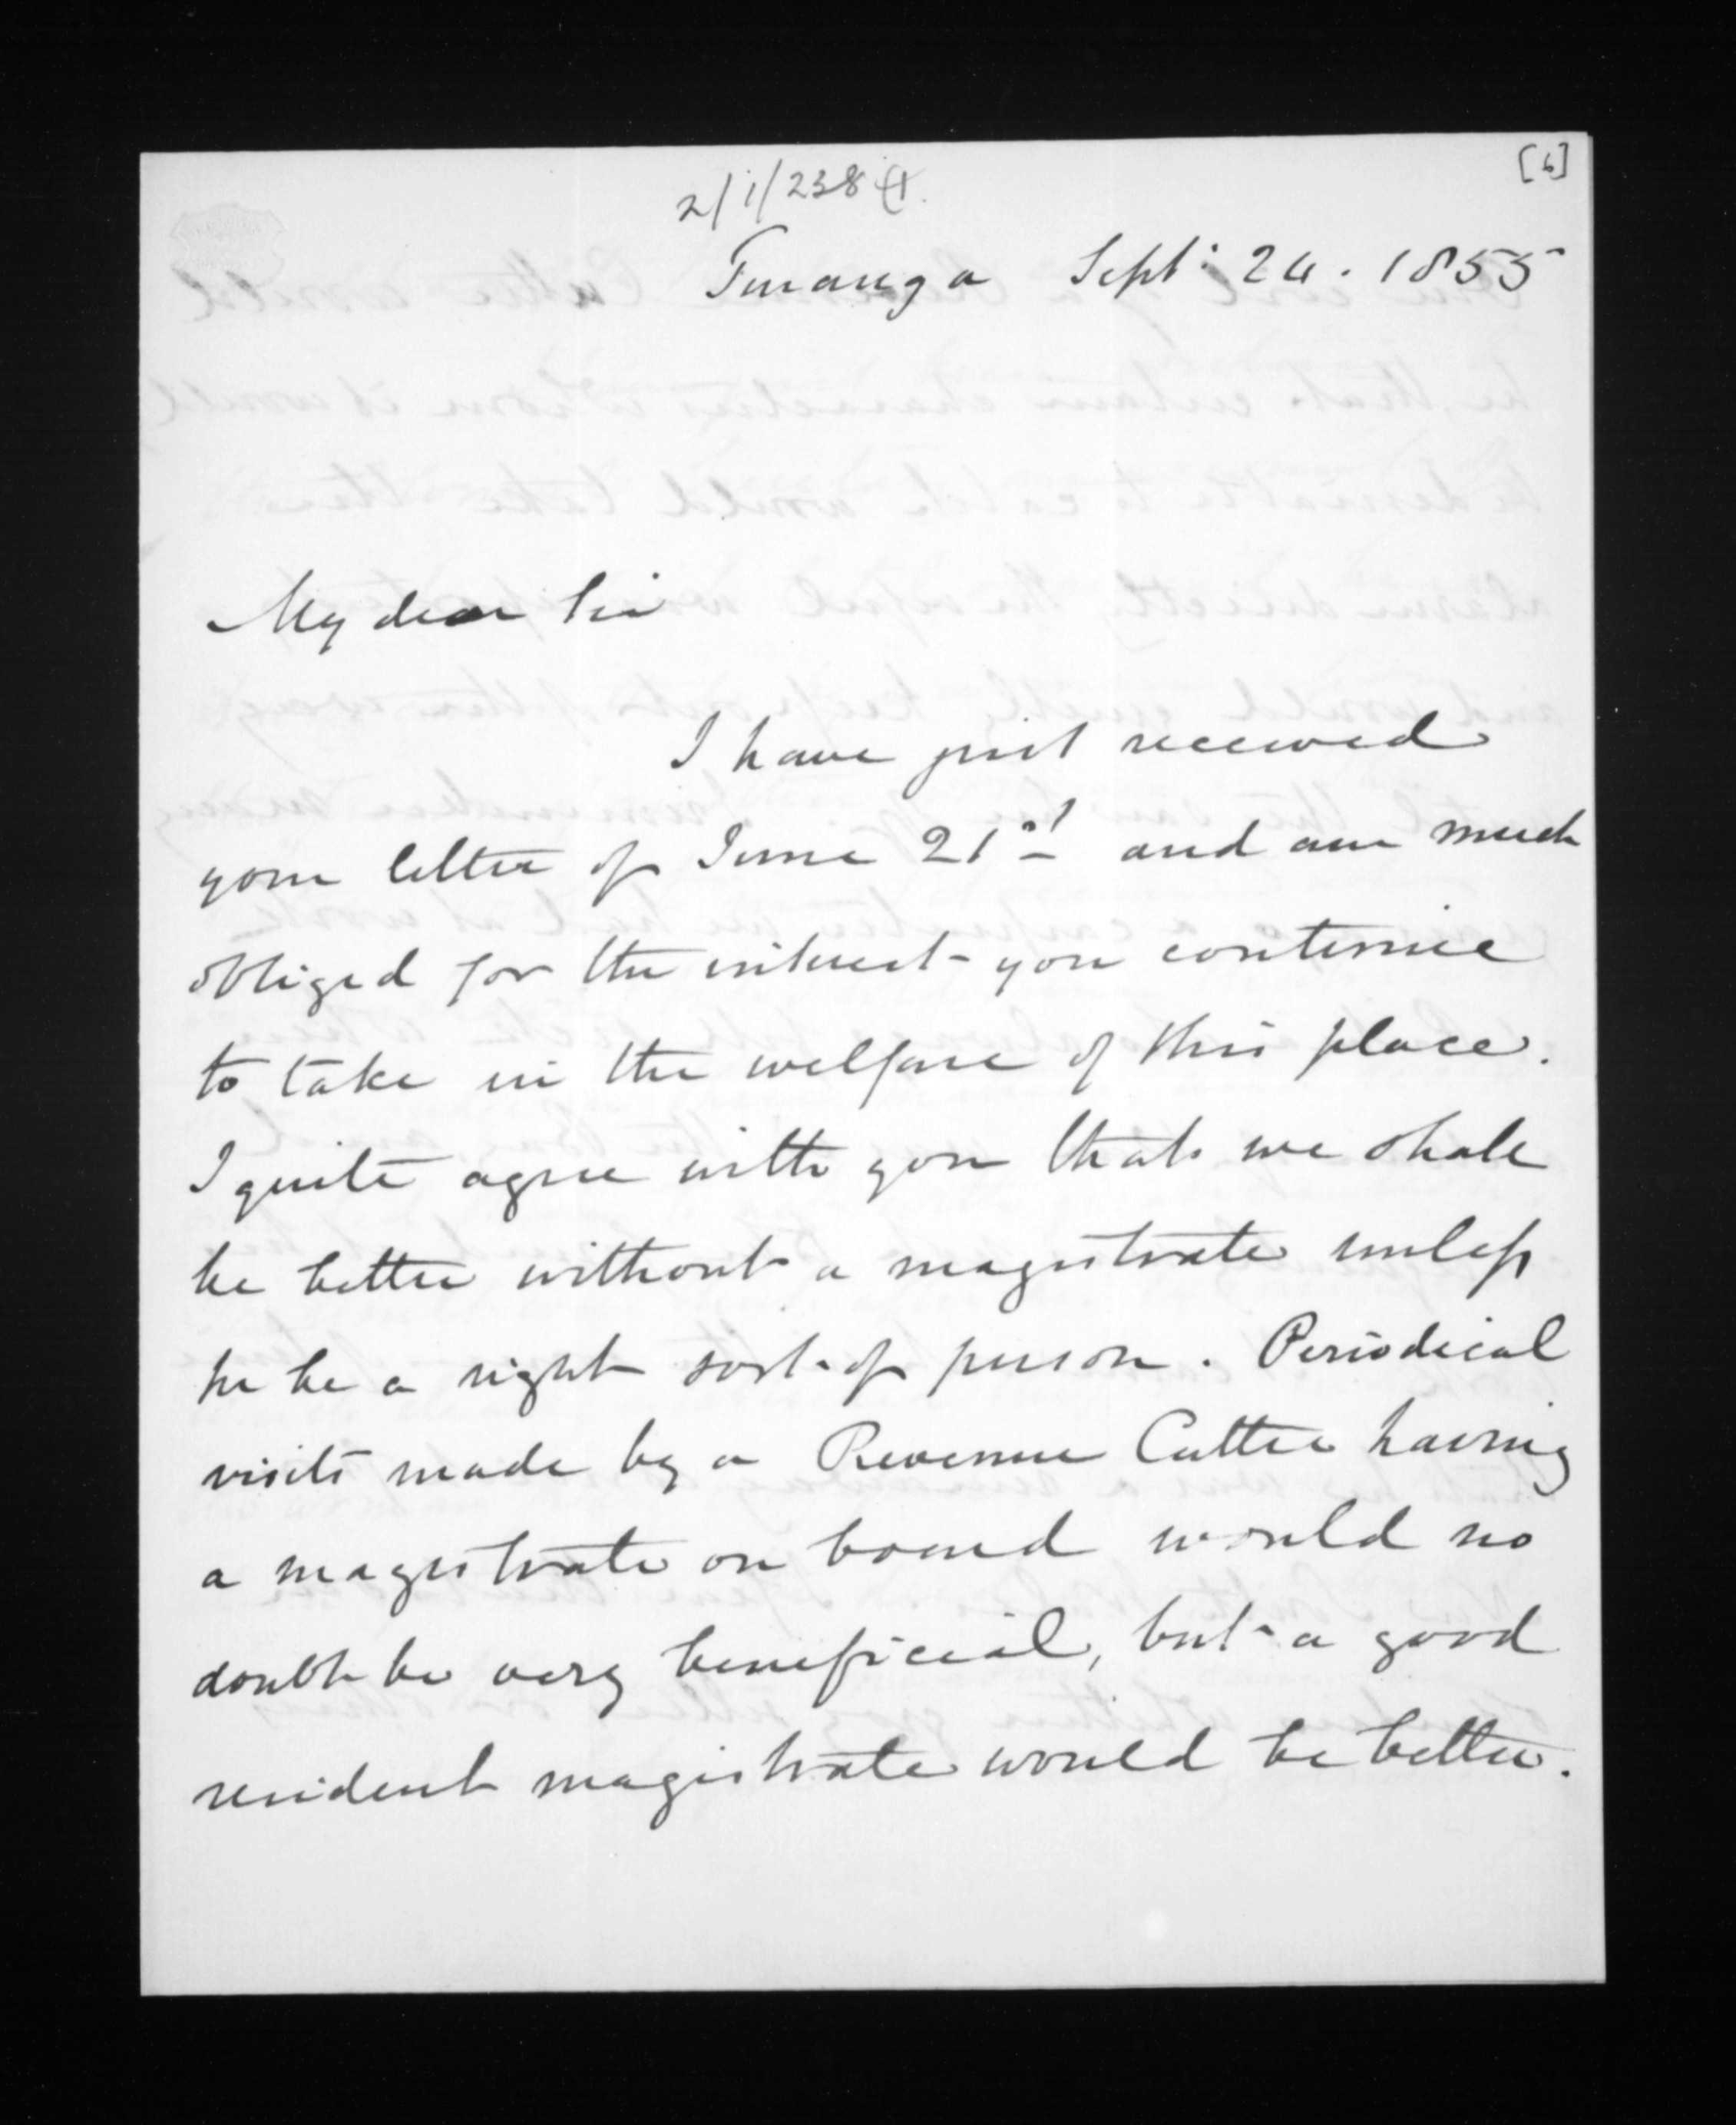 [6]
2/1/238
Tauranga Sept. 24. 1855
My dear Sir
I have just received
your letter of June 21st and am much
obliged for the interest you continue
to take in the welfare of this place.
I quite agree with you that we shall
be better without a magistrate unless
he be a right sort of person. Periodical
visits made by a Revenue Cutter having
a magistrate on board would no
doubt be very beneficial, but a good
resident magistrate would be better.